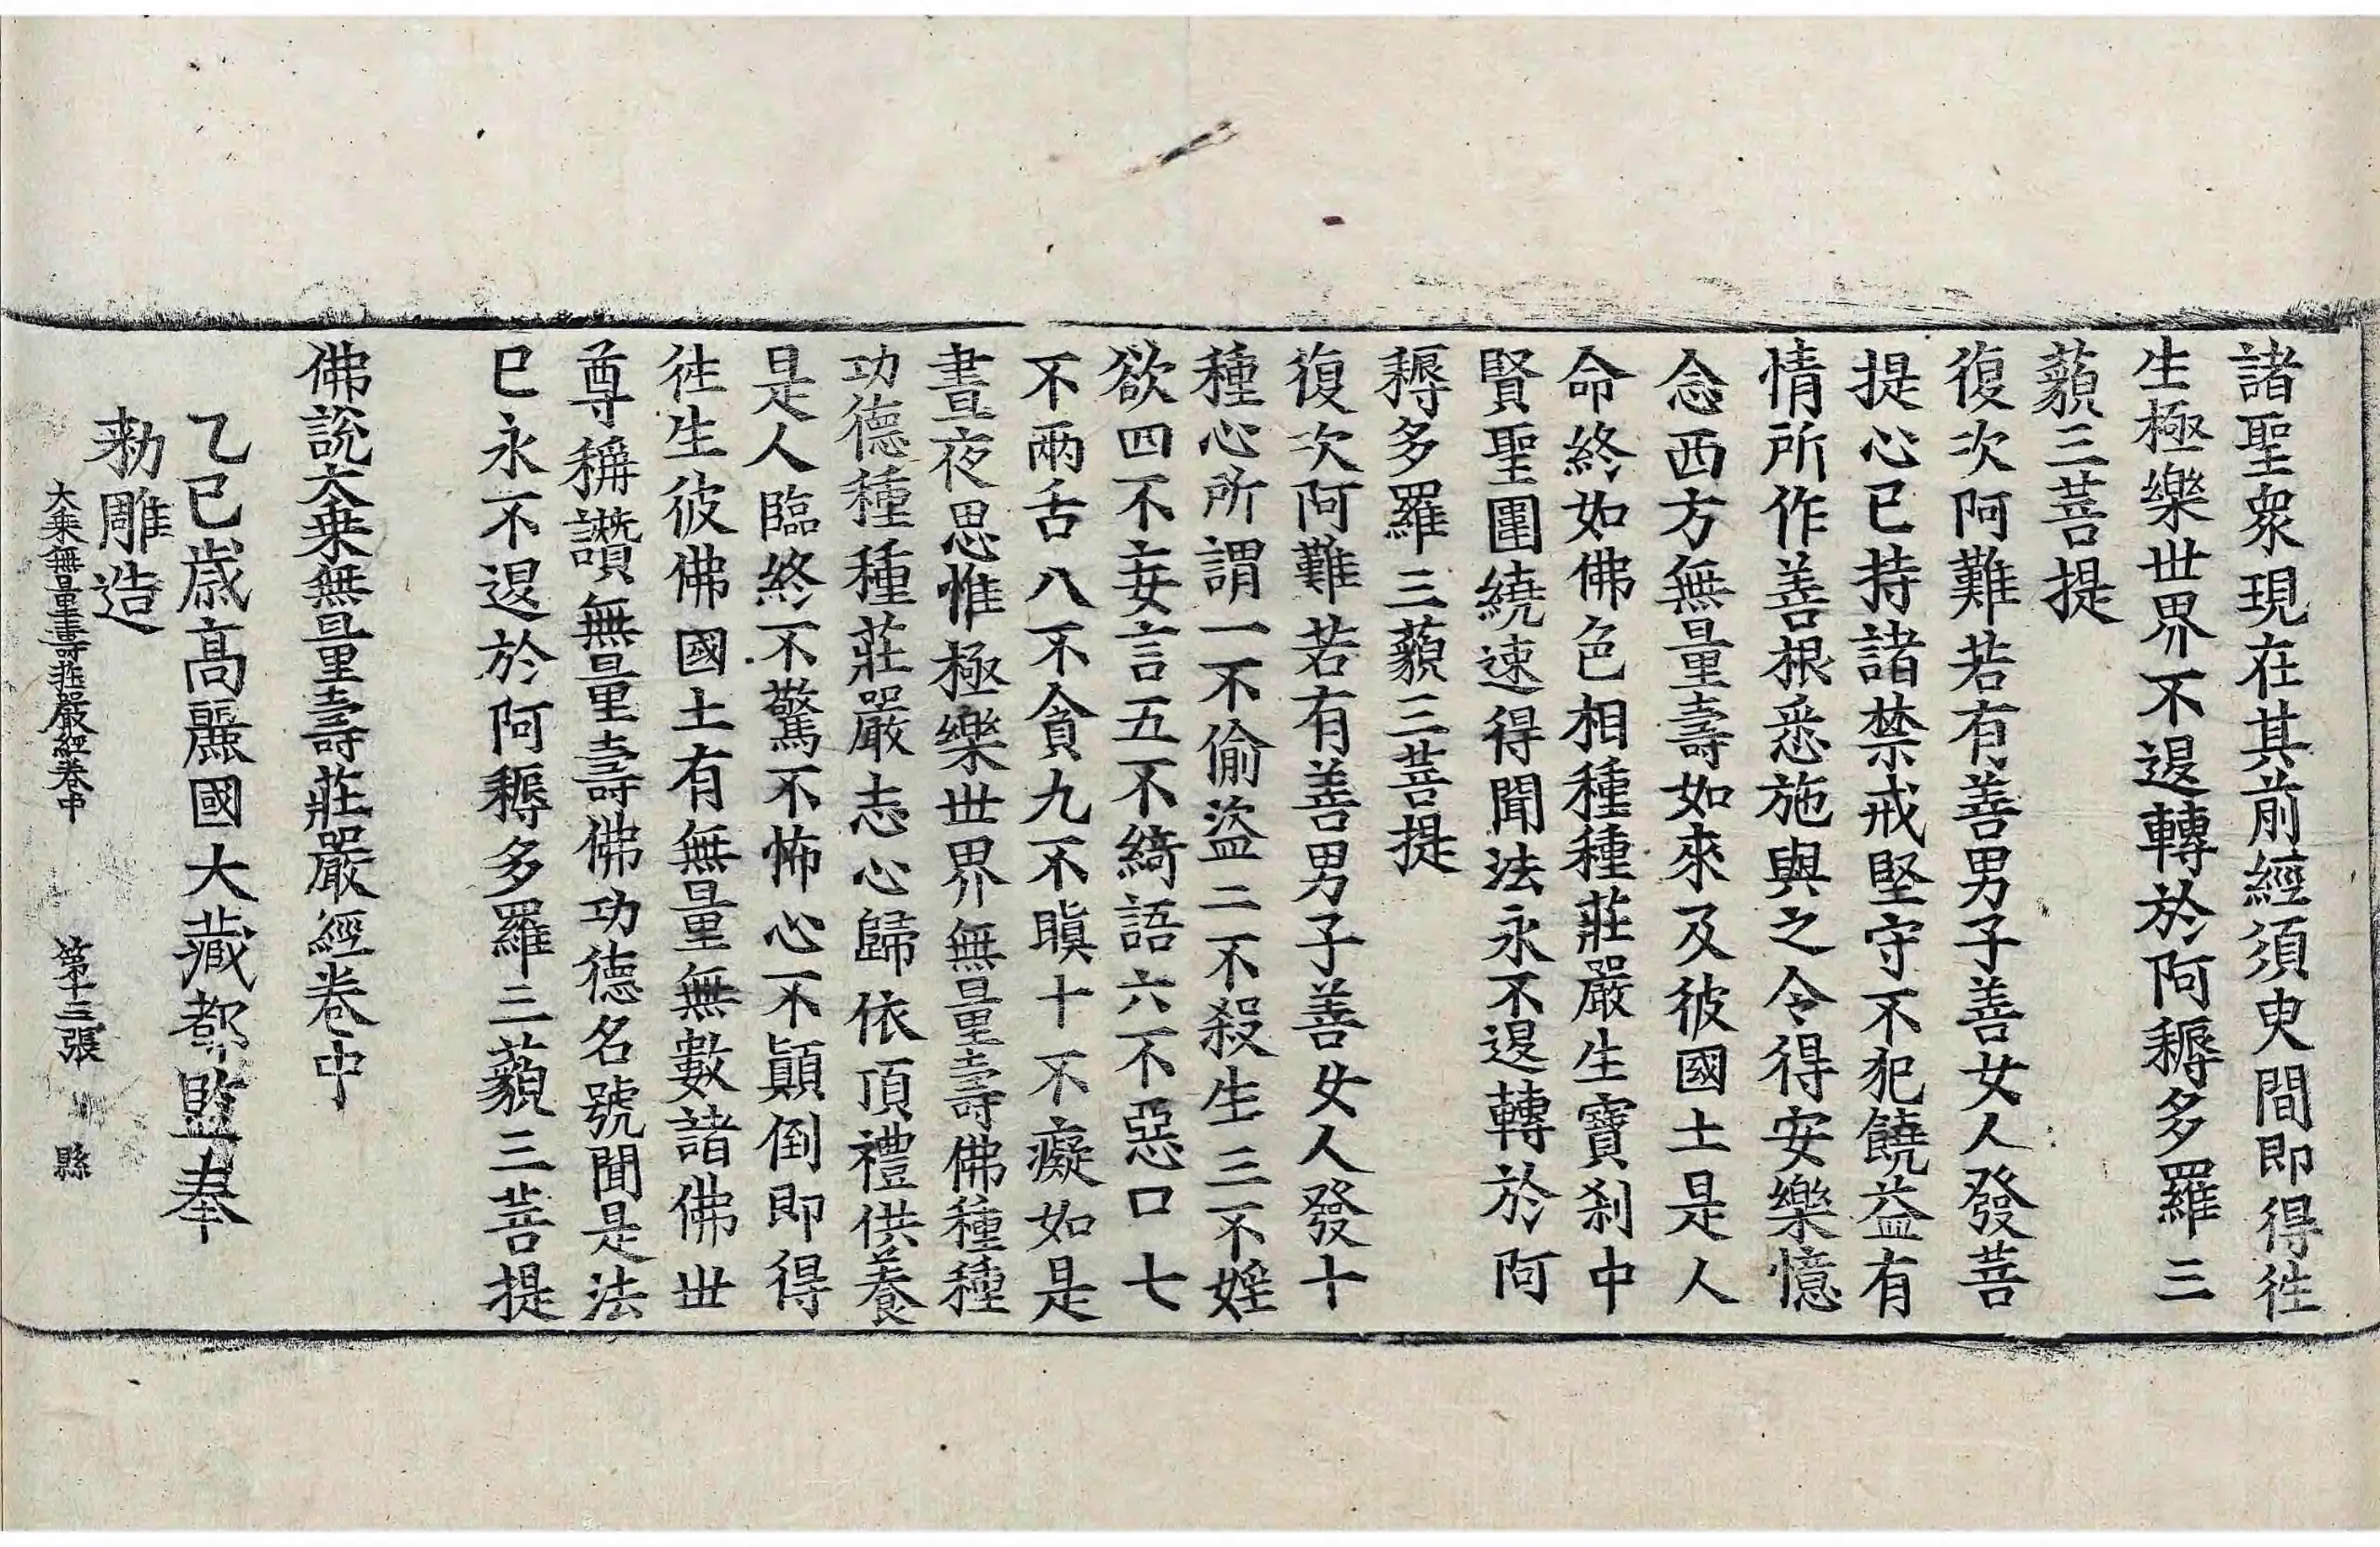 諸聖衆現在其前經須臾間即得徃
生極樂世界不退轉於阿耨多羅三
藐三菩提
復次阿難若有善男子善女人發菩
提心已持諸禁戒堅守不犯饒益有
情所作善根悉施與之令得安樂憶
念西方無量壽如來及彼國土是人
命終如佛色相種種莊嚴生寶刹中
賢聖圍繞速得聞法永不退轉於阿
耨多羅三藐三菩提
復次阿難若有善男子善女人發十
種心所謂一不偷盜二不殺生三不婬
欲四不妄言五不綺語六不惡口七
不兩舌八不貪九不瞋十不癡如是
晝夜思惟極樂世界無量壽佛種種
功德種種莊嚴志心歸依頂禮供養
是人臨終不驚不怖心不顚倒即得
徃生彼佛國土有無量無數諸佛世
尊稱讚無量壽佛功德名號聞是法
已永不退於阿耨多羅三藐三菩提
佛說大乘無量壽莊嚴經卷中
乙巳歲高麗國大藏都監奉
勅雕造
大乘無量壽莊嚴經卷中 第十三張 縣